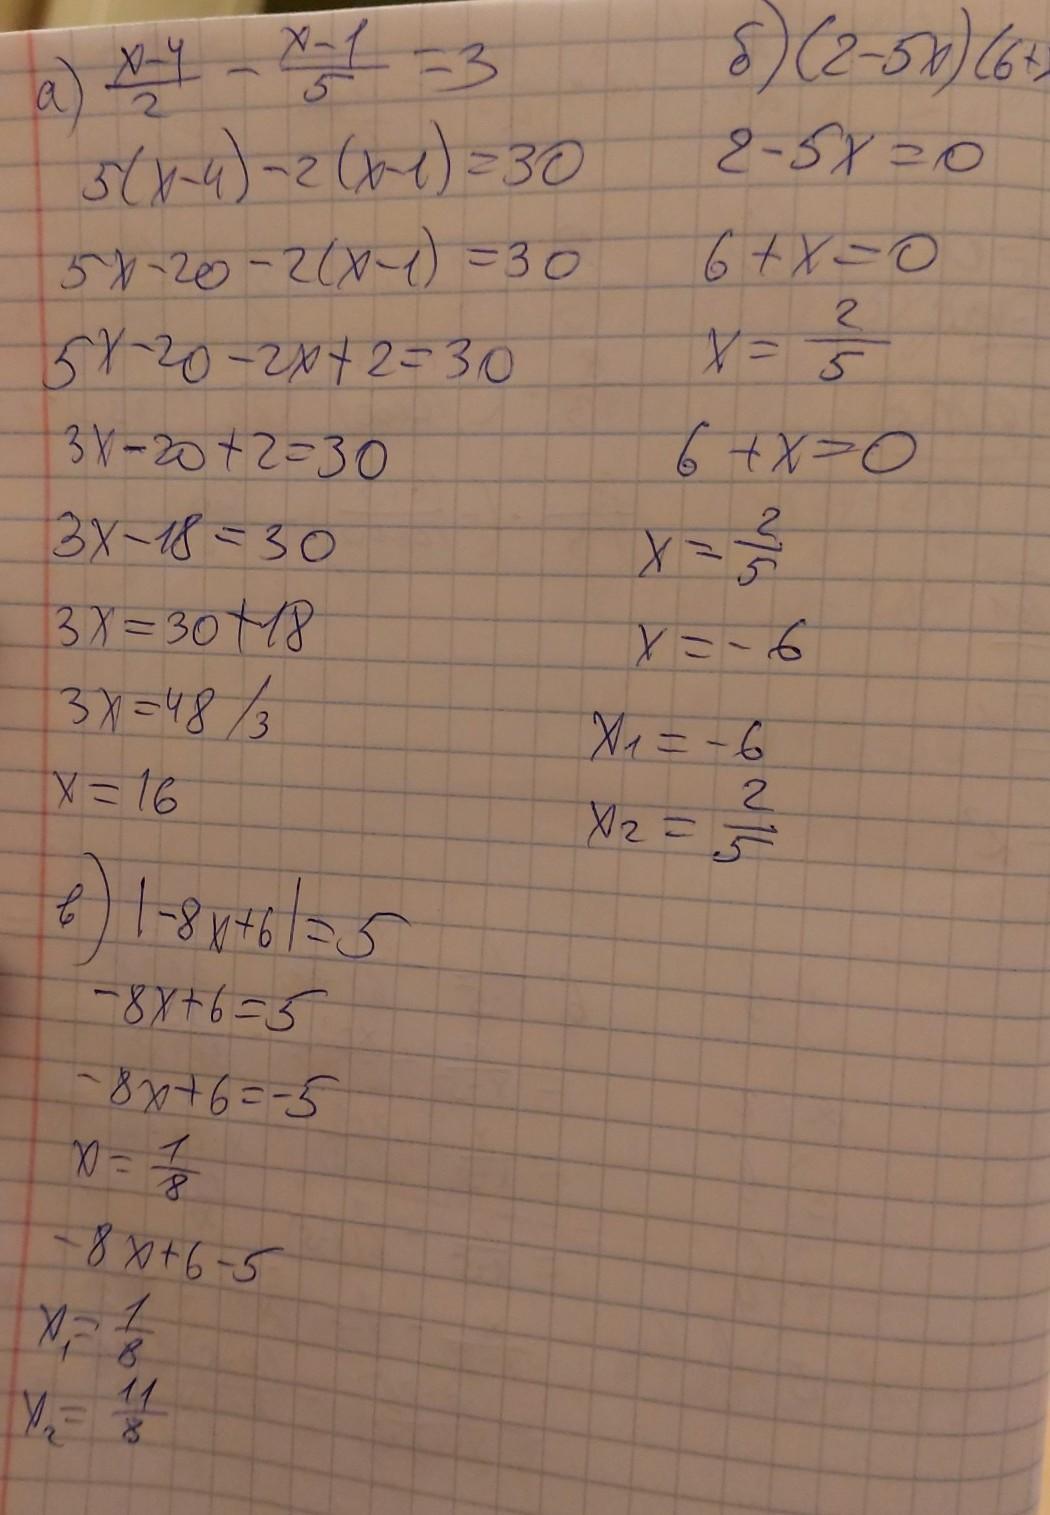 а) (x-4)/2 - (x-1)/5 = 3
5(x-4)-2(x-1)=30
5x-20-2(x-1)=30
5x-20-2x+2=30
3x-20+2=30
3x-18=30
3x=30+18
3x=48 /3
x=16
б) (2-5x)(6+
2-5x=0
6+x=0
x= 2/5
6+x=0
x= 2/5
x=-6
x₁=-6
x₂= 2/5
в) |-8x+6|=5
-8x+6=5
-8x+6=-5
x= 1/8
-8x+6-5
x₁= 1/8
x₂= 11/8